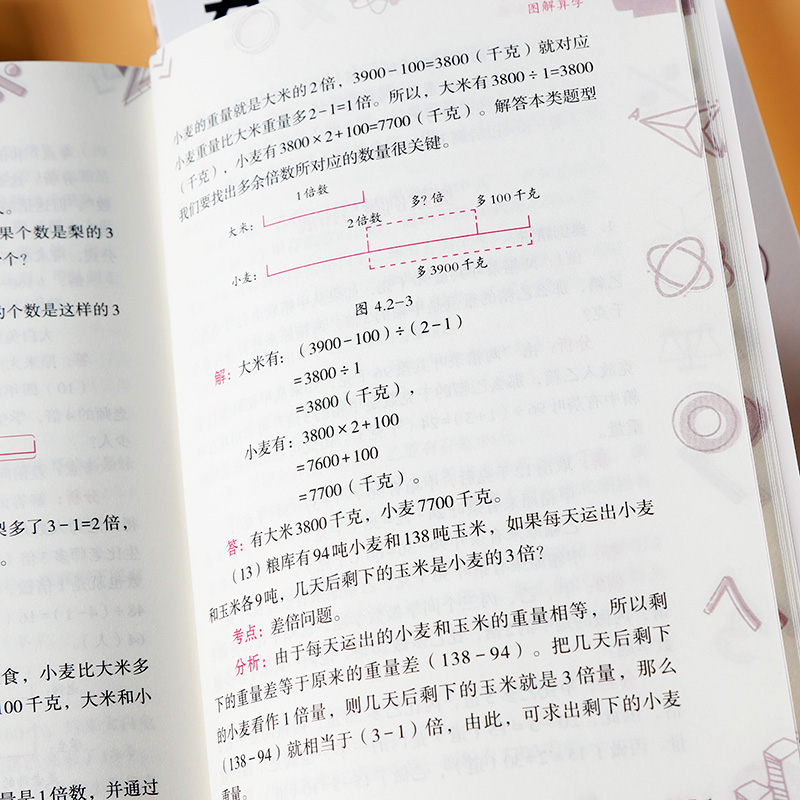 人。
果个数是梨的3
个?
的个数是这样的3
梨多了3-1=2倍,
。
食,小麦比大米多
100千克,大米和小
量是1倍数,并通过
图解算学
小麦的重量就是大米的2倍,3900-100=3800(千克)就对应
小麦重量比大米重量多2-1=1倍。所以,大米有3800÷1=3800
(千克),小麦有3800×2+100=7700(千克)。解答本类题型
我们要找出多余倍数所对应的数量很关键。
1倍数
大米:
2倍数 多?倍 多100千克
小麦:
多3900千克
图 4.2-3
解:大米有:(3900-100)÷(2-1)
=3800÷1
=3800(千克),
小麦有:3800×2+100
=7600+100
=7700(千克)。
答:有大米3800千克,小麦7700千克。
(13)粮库有94吨小麦和138吨玉米,如果每天运出小麦
和玉米各9吨,几天后剩下的玉米是小麦的3倍?
考点:差倍问题。
分析:由于每天运出的小麦和玉米的重量相等,所以剩
下的重量差等于原来的重量差(138-94)。把几天后剩下
的小麦看作1倍量,则几天后剩下的玉米就是3倍量,那么
(138-94)就相当于(3-1)倍,由此,可求出剩下的小麦
重量。